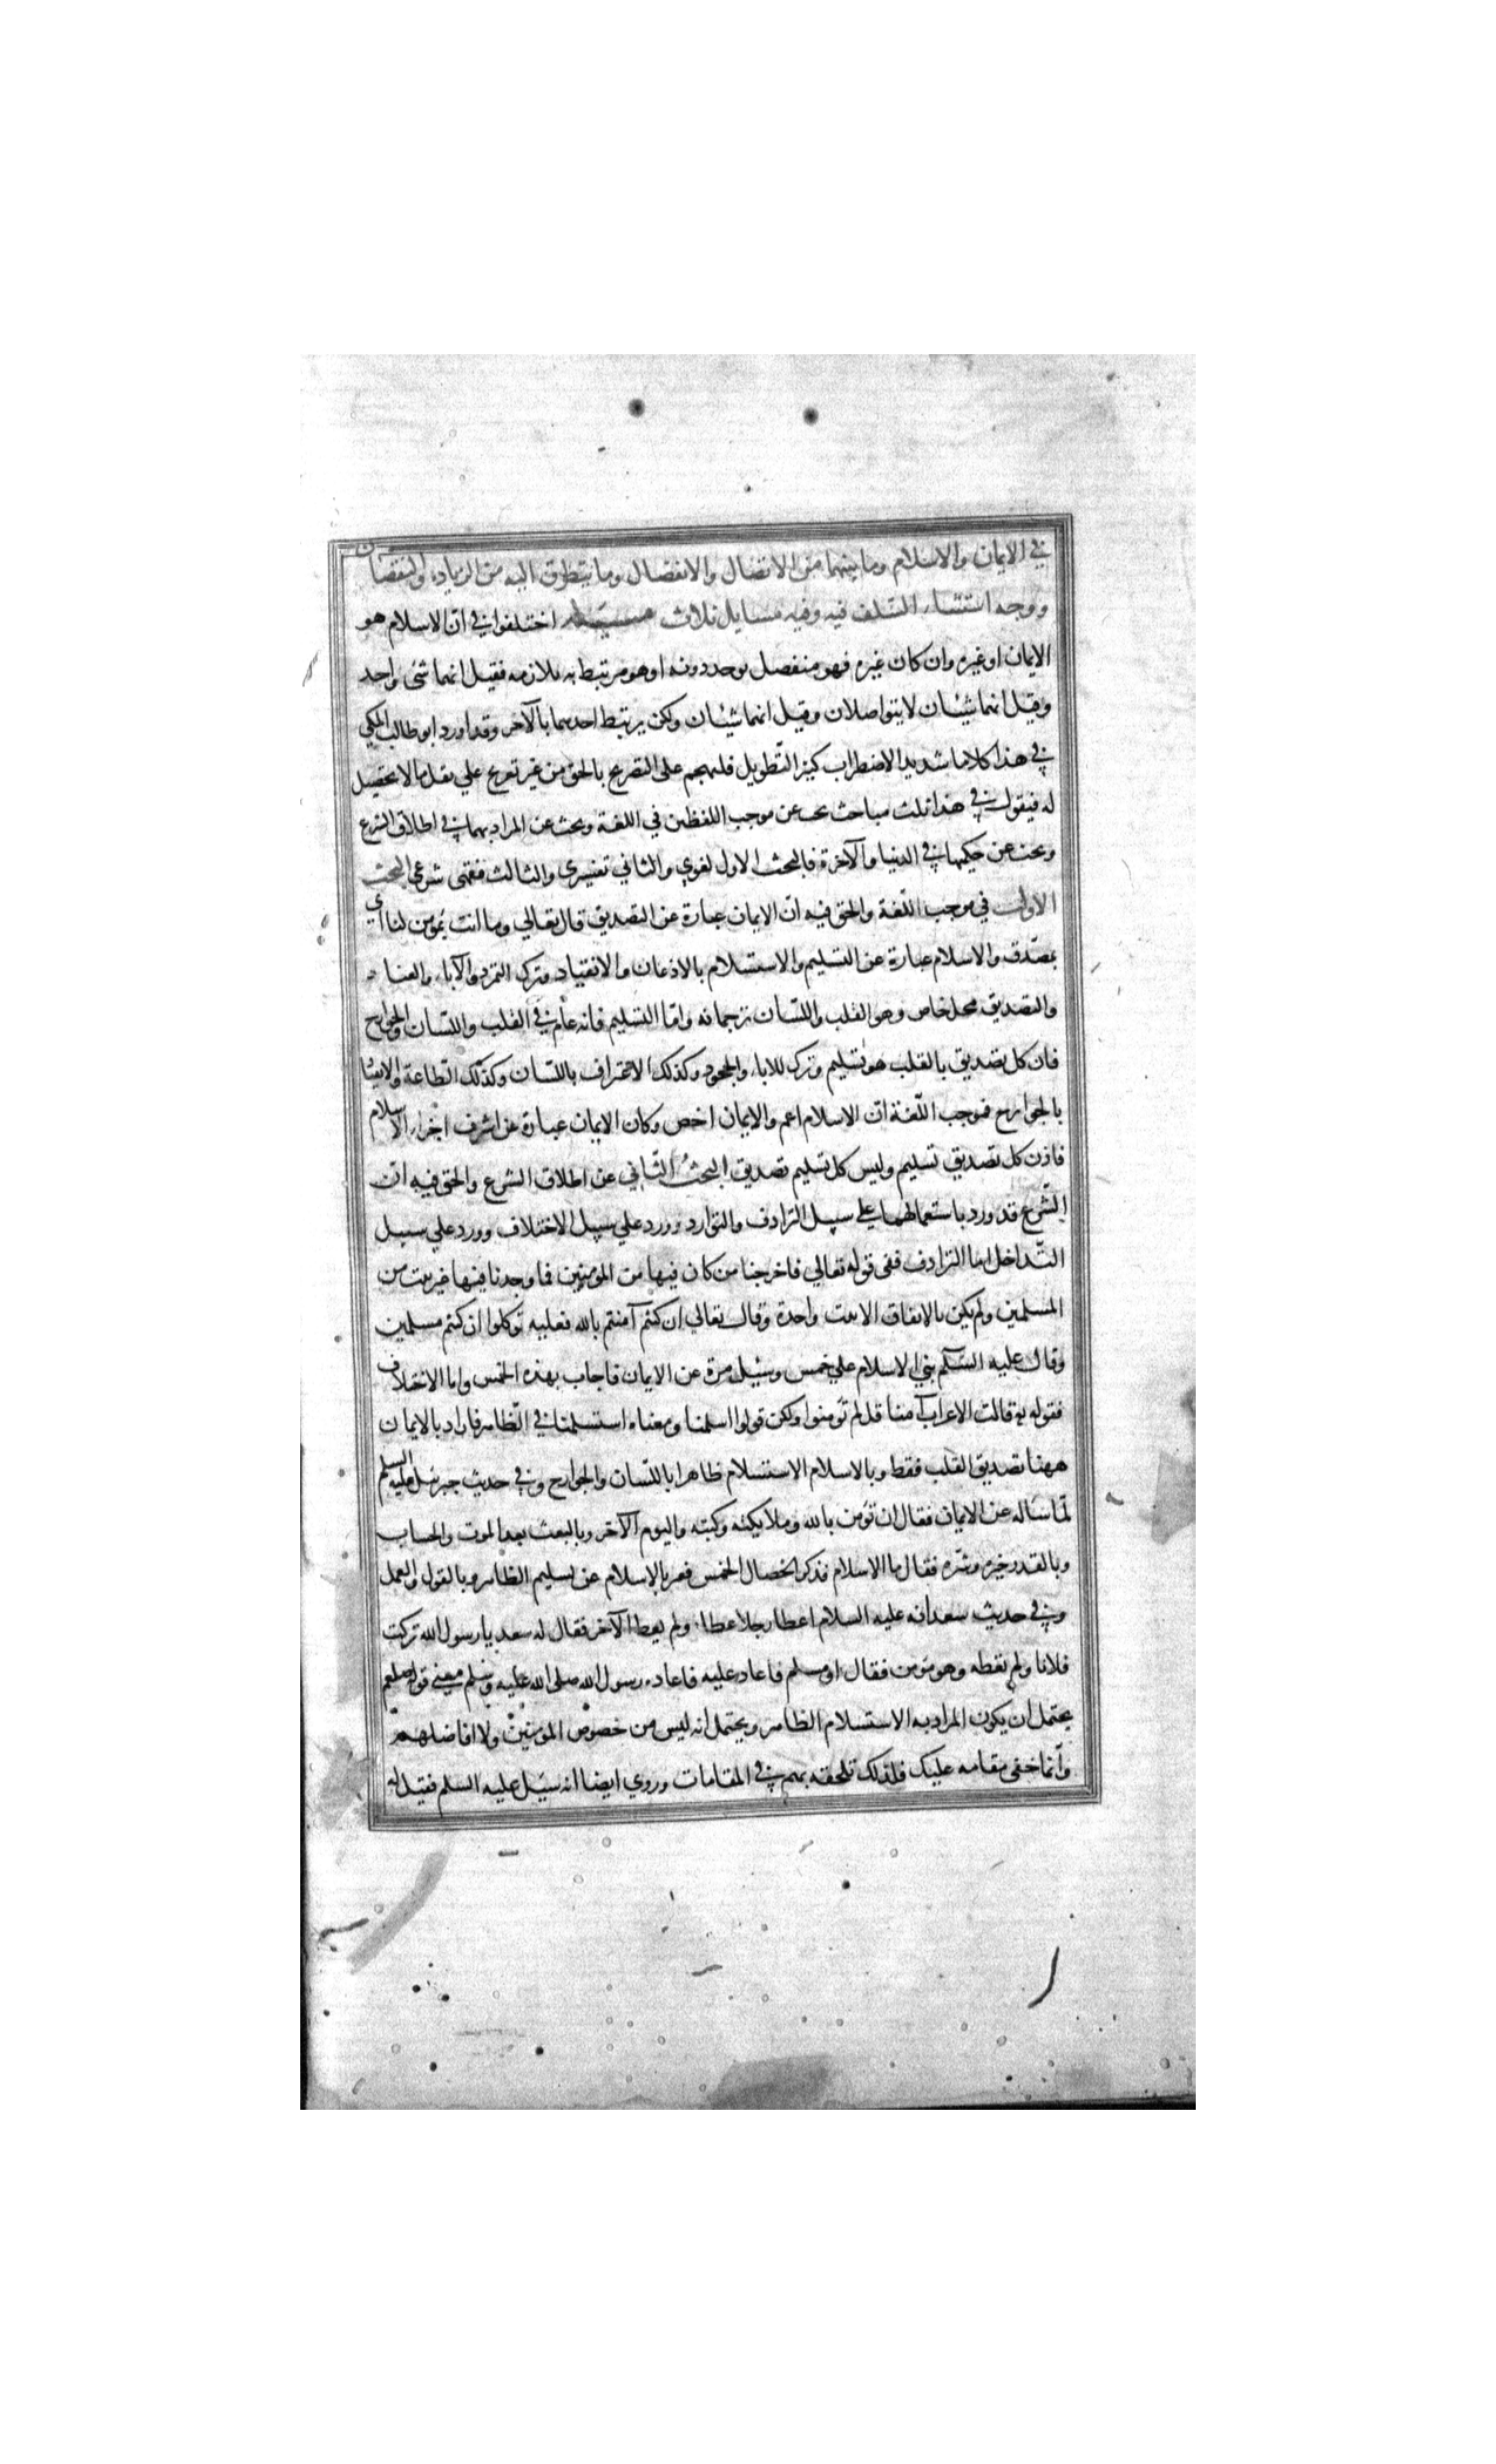 في الايمان والاسلام وما بينهما من الاتصال والانفصال وما يتطرق اليه من الزيادة والنقصان
ووجه استثناء السّلف فيه وفيه مسايل ثلاث مسئلة اختلفوا في انّ الاسلام هو
الايمان او غيره وان كان غيره فهو منفصل يوجد دونه او هو مرتبط به ملازمه فقيل انهما شئ واحد
وقيل انهما شيئان لا يتواصلان وقيل انهما شيئان ولكن يرتبط احدهما بالآخر وقد اورد ابو طالب المكي
في هذا كلاما شديد الاضطراب كثير التّطويل فلنهجم على التصريح بالحق من غير تعريج علي نقل ما لا تحصيل
له فيقول في هذا ثلث مباحث بحث عن موجب اللفظين في اللغة وبحث عن المراد بهما في اطلاق الشرع
وبحث عن حكمهما في الدنيا والآخرة فالبحث الاول لغوي والثاني تفسيري والثالث فقهي شرعي البحث
الاول في موجب اللّغة والحق فيه انّ الايمان عبارة عن التصديق قال تعالي وما انت بمؤمن لنا اي
بمصدّق والاسلام عبارة عن التسليم والاستسلام بالاذعان والانقياد وترك التمرد والآباء والعناد
والتصديق محل خاص وهو القلب واللسان ترجمانه وامّا التسليم فانه عام في القلب واللسان والجوارح
فان كل تصديق بالقلب هو تسليم وترك للاباء والجحود وكذلك الاعتراف باللسان وكذلك الطاعة والانقياد
بالجوارح فموجب اللّغة انّ الاسلام اعم والايمان اخص وكان الايمان عبارة عن اشرف اجزاء الاسلام
فاذن كل تصديق تسليم وليس كل تسليم تصديق البحثُ الثّاني عن اطلاق الشرع والحق فيه انّ
الشّرع قد ورد باستعمالهما علي سبيل الترادف والتوارد وورد علي سبيل الاختلاف وورد علي سبيل
التّداخل اما الترادف ففي قوله تعالي فاخرجنا من كان فيها من المومنين فما وجدنا فيها غير بيت من
المسلمين ولم يكن بالاتفاق الا بيت واحدة وقال تعالي ان كنتم آمنتم بالله فعليه توكلوا ان كنتم مسلمين
وقال عليه السّلم بني الاسلام علي خمس وسُيل مرة عن الايمان فاجاب بهذه الخمس واما الاختلاف
فقوله تع قالت الاعراب آمنا قل لم تؤمنوا ولكن قولوا اسلمنا ومعناه استسلمنا في الظّاهر فاراد بالايمان
ههنا تصديق القلب فقط وبالاسلام الاستسلام ظاهرا باللسان والجوارح وفي حديث جبرئيل عليه السلم
لمّا ساله عن الايمان فقال ان تؤمن بالله وملايكته وكتبه واليوم الآخر وبالبعث بعد الموت والحساب
وبالقدر خيره وشرّه فقال ما الاسلام فذكر الخصال الخمس فعبر بالاسلام عن تسليم الظاهر وبالقول والعمل
وفي حديث سعد انه عليه السلام اعطا رجلا عطاء ولم يعط الآخر فقال له سعد يا رسول الله تركت
فلانا ولم تعطه وهو مؤمن فقال او مسلم فاعاد عليه فاعاده رسول الله صلى الله عليه وسلم معني قوله صلعم
يحتمل ان يكون المراد به الاستسلام الظاهر ويحتمل انه ليس من خصوص المومنين ولا افاضلهم
وانّما خفي مقامه عليك فلذلك تلحقه بهم في المقامات وروي ايضا انه سئيل عليه السلم فقيل له